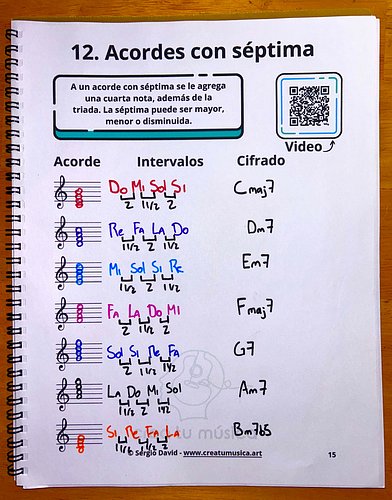 12. Acordes con séptima
A un acorde con séptima se le agrega
una cuarta nota, además de la
triada. La séptima puede ser mayor,
menor o disminuida.
Video
Acorde Intervalos Cifrado
Do Mi Sol Si Cmaj7
2 1 1/2 2
Re Fa La Do Dm7
1 1/2 2 1 1/2
Mi Sol Si Re Em7
1 1/2 2 1 1/2
Fa La Do Mi Fmaj7
2 1 1/2 2
Sol Si Re Fa G7
2 1 1/2 1 1/2
La Do Mi Sol Am7
1 1/2 2 1 1/2
Si Re Fa La Bm7b5
1 1/2 1 1/2 2
© Sergio David - www.creatumusica.art 15